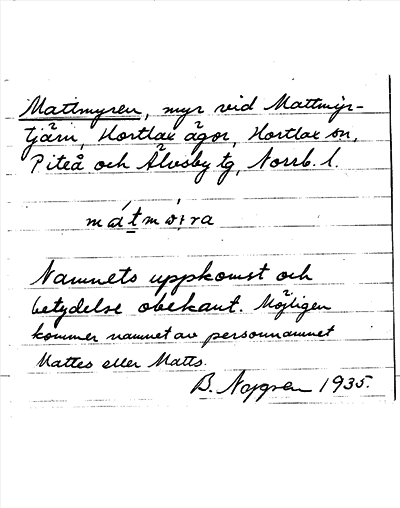 Mattmyren, myr vid Mattmyr-
tjärn, Hortlax ägor, Hortlax sn,
Piteå och Älvsby tg, Norrb. l.
Namnets uppkomst och
betydelse obekant. Möjligen
kommer namnet av personnamnet
Mattes eller Matts.
B. 1935.